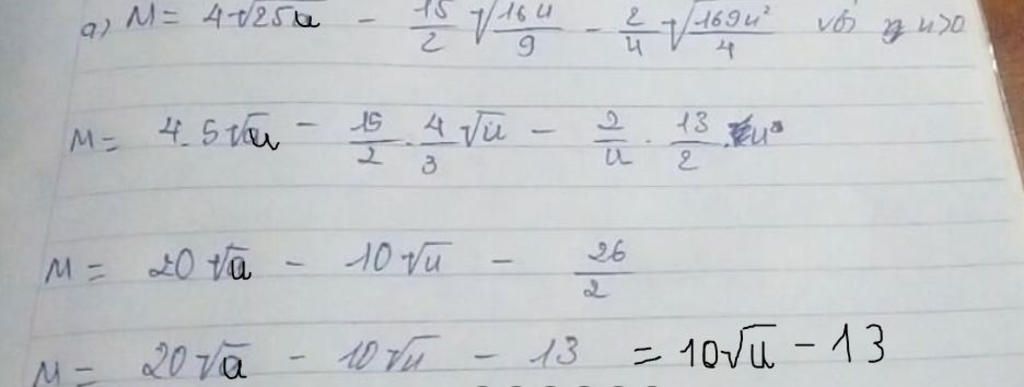 a) M = 4√25u - 15/2 √(16u/9) - 2/u √(169u²/4) với u>0
M = 4.5√u - 15/2 . 4/3 √u - 2/u . 13/2 . u
M = 20√u - 10√u - 26/2
M = 20√u - 10√u - 13 = 10√u - 13